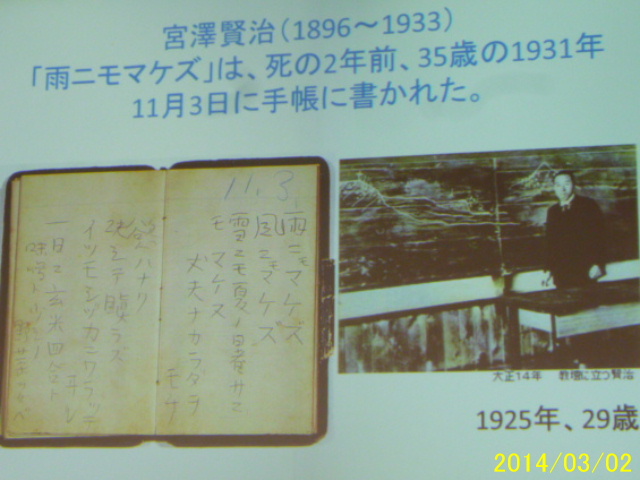 宮澤賢治(1896～1933)
「雨ニモマケズ」は、死の2年前、35歳の1931年
11月3日に手帳に書かれた。
11.3.
雨ニモマケズ
風ニモマケズ
雪ニモ夏ノ暑サニ
モ マケズ
丈夫ナカラダヲ
モチ
慾ハナク
決シテ瞋ラズ
イツモシヅカニワラッテ
ヰル
一日ニ玄米四合ト
味噌ト少シノ
野菜ヲタベ
大正14年 教壇に立つ賢治
1925年、29歳
2014/03/02